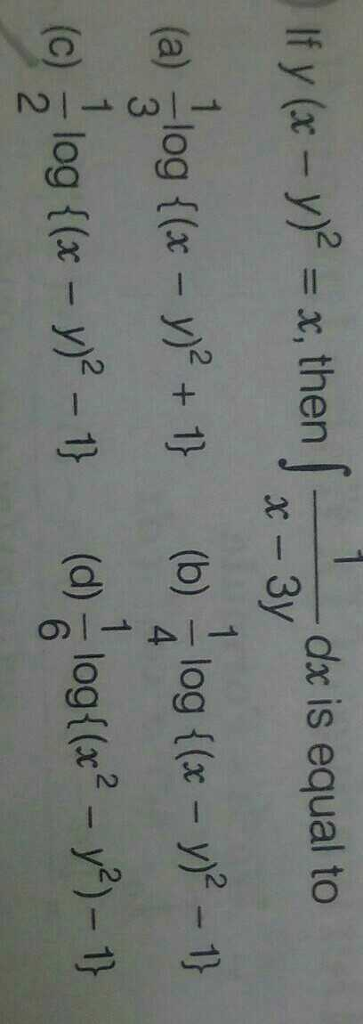 If y (x − y)² = x, then ∫ 1/(x − 3y) dx is equal to
(a) 1/3 log {(x − y)² + 1} (b) 1/4 log {(x − y)² − 1}
(c) 1/2 log {(x − y)² − 1} (d) 1/6 log{(x² − y²) − 1}